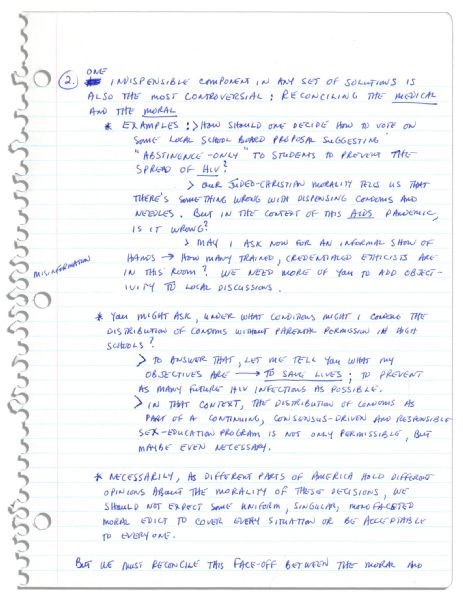 ONE
2. INDISPENSIBLE COMPONENT IN ANY SET OF SOLUTIONS IS
ALSO THE MOST CONTROVERSIAL: RECONCILING THE MEDICAL
AND THE MORAL
* EXAMPLES: > HOW SHOULD ONE DECIDE HOW TO VOTE ON
SOME LOCAL SCHOOL BOARD PROPOSAL SUGGESTING
"ABSTINENCE-ONLY" TO STUDENTS TO PREVENT THE
SPREAD OF HIV?
> OUR JUDEO-CHRISTIAN MORALITY TELLS US THAT
THERE'S SOMETHING WRONG WITH DISPENSING CONDOMS AND
NEEDLES. BUT IN THE CONTEXT OF THIS AIDS PANDEMIC,
IS IT WRONG?
> MAY I ASK NOW FOR AN INFORMAL SHOW OF
HANDS → HOW MANY TRAINED, CREDENTIALED ETHICISTS ARE
MISINFORMATION
IN THIS ROOM? WE NEED MORE OF YOU TO ADD OBJECT-
IVITY TO LOCAL DISCUSSIONS.
* YOU MIGHT ASK, UNDER WHAT CONDITIONS MIGHT I CONDONE THE
DISTRIBUTION OF CONDOMS WITHOUT PARENTAL PERMISSION IN HIGH
SCHOOLS?
> TO ANSWER THAT, LET ME TELL YOU WHAT MY
OBJECTIVES ARE → TO SAVE LIVES; TO PREVENT
AS MANY FUTURE HIV INFECTIONS AS POSSIBLE.
> IN THAT CONTEXT, THE DISTRIBUTION OF CONDOMS AS
PART OF A CONTINUING, CONSENSUS-DRIVEN AND RESPONSIBLE
SEX-EDUCATION PROGRAM IS NOT ONLY PERMISSIBLE, BUT
MAYBE EVEN NECESSARY.
* NECESSARILY, AS DIFFERENT PARTS OF AMERICA HOLD DIFFERENT
OPINIONS ABOUT THE MORALITY OF THESE DECISIONS, WE
SHOULD NOT EXPECT SOME UNIFORM, SINGULAR, MONOFACETED
MORAL EDICT TO COVER EVERY SITUATION OR BE ACCEPTABLE
TO EVERYONE.
BUT WE MUST RECONCILE THIS FACE-OFF BETWEEN THE MORAL AND